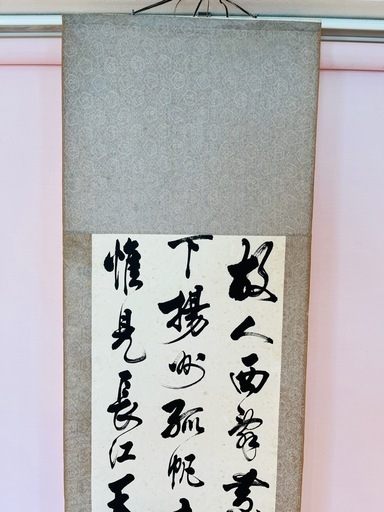 故人西辞黄
下揚州孤帆
惟見長江天